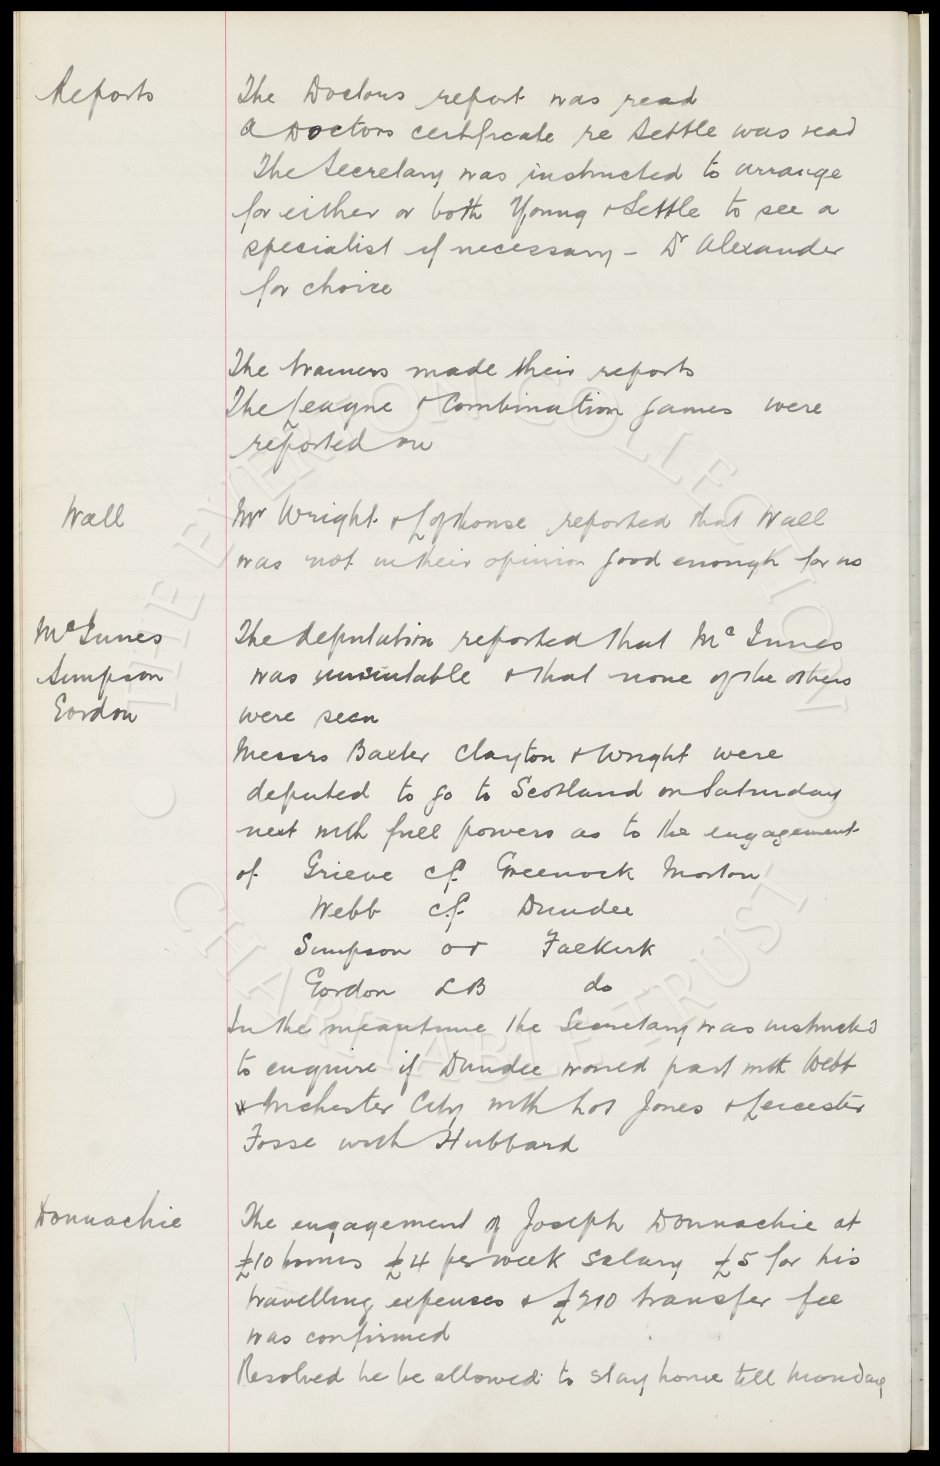 Reports
The Doctors report was read
A Doctors certificate re Settle was read
The Secretary was instructed to arrange
for either or both Young & Settle to see a
specialist if necessary - Dr Alexander
for choice
The trainers made their reports
The League & Combination games were
reported on
Wall
Mr Wright & Lofthouse reported that Wall
was not in their opinion good enough for us
McInnes
Simpson
Gordon
The deputation reported that McInnes
was unsuitable & that none of the others
were seen
Messrs Baxter Clayton & Wright were
deputed to go to Scotland on Saturday
next with full powers as to the engagement
of Grieve cf. Greenock Morton
Webb c.f. Dundee
Simpson or Falkirk
Gordon LB do
In the meantime the Secretary was instructed
to enquire if Dundee would part with Webb
Manchester City with Jones & Leicester
Fosse with Hubbard
Donnachie
The engagement of Joseph Donnachie at
£10 bonus £4 per week salary £5 for his
travelling expenses & transfer fee
was confirmed
Resolved he be allowed to stay home till Monday
THE EVERTON COLLECTION
CHARITABLE TRUST